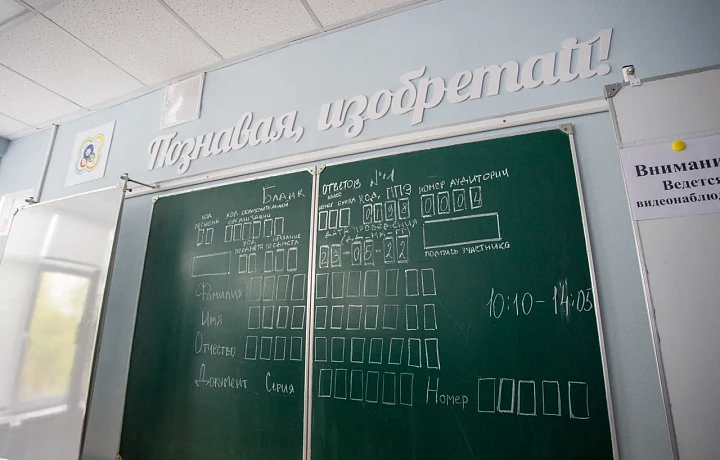 Познавая, изобретай!
Внимани
Ведется
видеонаблюд
Бланк ответов №1
код региона код образовательной организации класс номер буква код ППЭ номер аудитории
0002
дата проведения
ДД-ММ-ГГ
23-05-22
код предмета название предмета
подпись участника
Фамилия
Имя
10:10-14:05
Отчество
Документ Серия Номер